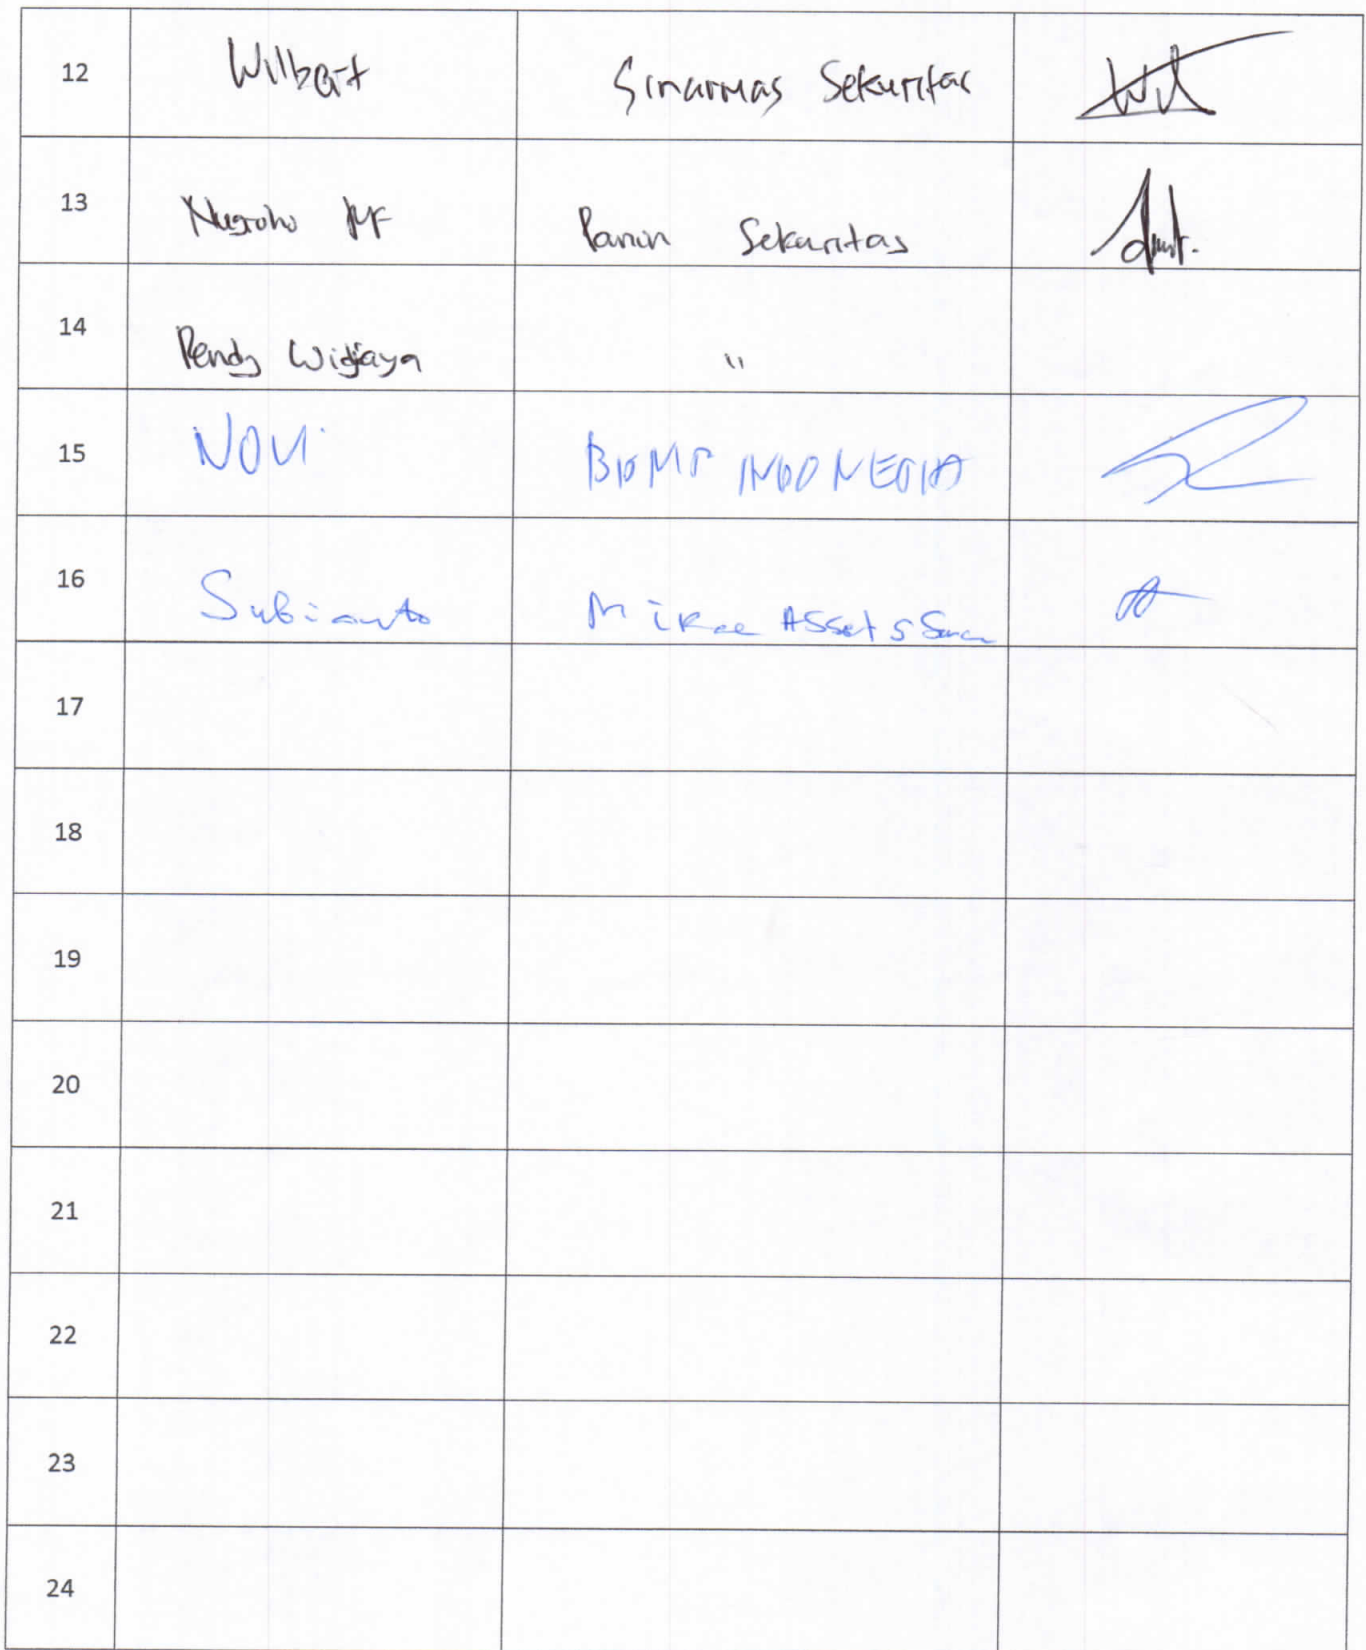 12 Wilbert Sinarmas Sekuritas
13 Nugroho MF Panin Sekuritas
14 Rendy Widjaya "
15 NOVI INDONESIA
16 Subianto Assets
17
18
19
20
21
22
23
24